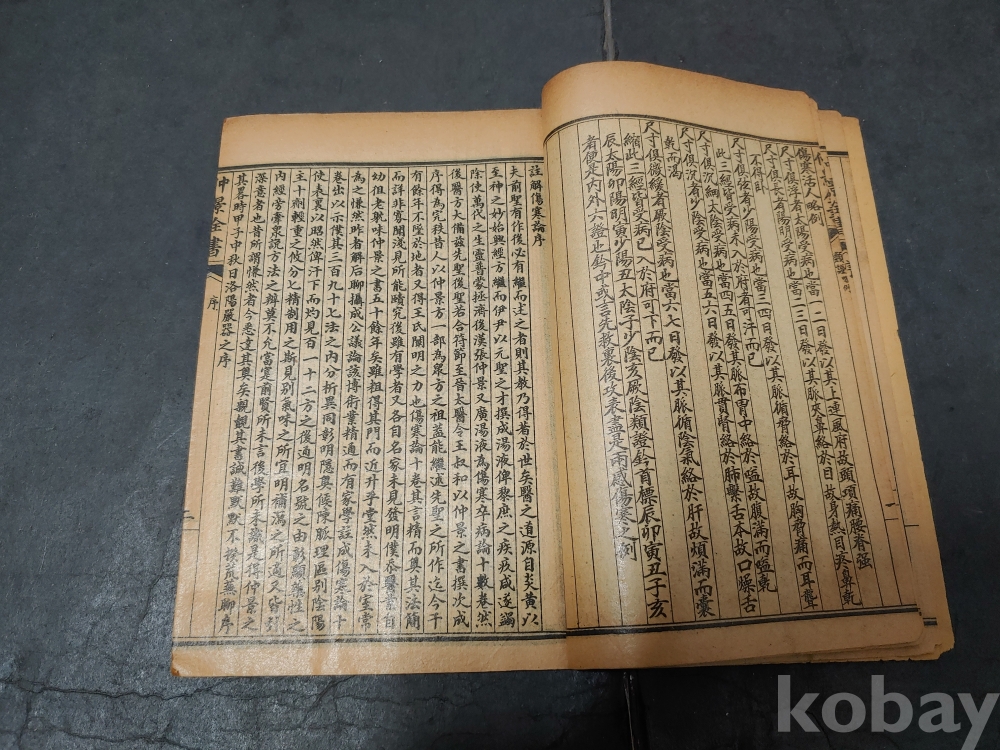 傷寒活人略例
尺寸俱浮者有太陽受病也當一二日發以其上連風府故頭項痛腰脊強
尺寸俱長者陽明受病也當二三日發以其脈夾鼻絡於目故身熱目疼鼻乾
不得臥
尺寸俱弦者少陽受病也當三四日發以其脈循脅絡於耳故胸脅痛而耳聾
此三經皆受病未入於府者可汗而已
尺寸俱沉細者太陰受病也當四五日發其脈布胃中絡於嗌故腹滿而嗌乾
尺寸俱沉者少陰受病也當五六日發以其脈貫腎絡於肺繫舌本故口燥舌
乾而渴
尺寸俱微緩者厥陰受病也當六七日發以其脈循陰氣絡於肝故煩滿而囊
縮此三經皆受病已入於府可下而已
辰太陽卯陽明寅少陽丑太陰子少陰亥厥陰類證鈐首標辰卯寅丑子亥
者便是內外六證也鈐中或言先救裏後攻表盡是兩感傷寒之例
註解傷寒論序
夫前聖有作後必有繼而述之者則其教乃得著於世矣醫之道源自炎黃以
至神之妙始興經方繼而伊尹以元聖之才撰成湯液俾黎庶之疾疢咸遂蠲
除使萬代之生靈普蒙拯濟後漢張仲景又廣湯液為傷寒卒病論十數卷然
後醫方大備茲先聖後聖若合符節至晉太醫令王叔和以仲景之書撰次成
序得為完秩昔人以仲景方一部為眾方之祖蓋能繼述先聖之所作迄今千
有餘年不墜於地者又得王氏闡明之力也傷寒論十卷其言精而奧其法簡
而詳非寡聞淺見所能賾究後雖有學者又各自名家未見發明僕忝醫業自
幼徂老耽味仲景之書五十餘年矣雖粗得其門而近升乎堂然未入於室常
為之慊然昨者解后聊攝成公議論該博術業精通而有家學註成傷寒論十
卷出以示僕其三百九十七法之內分析異同彰明隱奧條陳脈理區別陰陽
使表裏以昭然俾汗下而灼見百一十二方之後通明名號之由彰顯藥性之
主十劑輕重之攸分七精制用之斯見別氣味之所宜明補瀉之所適又皆引
內經旁牽眾說方法之辨莫不允當實前賢所未言後學所未識是得仲景之
深意者也昔所謂慊然者今悉達其奧矣親覿其書誠難默默不揆荒蕪聊序
其畧時甲子中秋日洛陽嚴器之序
仲景全書
序
二
kobay